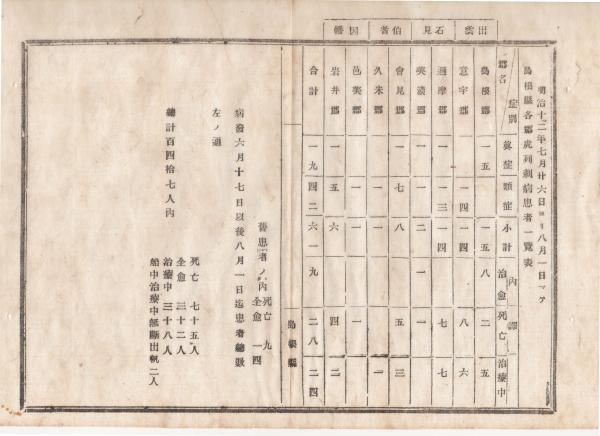 明治十二年七月廿六日ヨリ八月一日マテ
島根縣各郡虎列剌病患者一覧表
症別 郡名 眞症 類症 小計 內譯 治愈 死亡 治療中
出雲
島根郡 一五 一五 八 二 五
意宇郡 一四 一四 八 六
石見
邇摩郡 一 一三 一四 七 七
美濃郡 一 一 二 一 一
伯耆
會見郡 一 七 八 五 三
久米郡 一 一 一
因幡
邑美郡 一 一 一
岩井郡 一 五 六 四 二
合計 一九 四二 六一 九 二八 二四
島根縣
舊患者ノ內 死亡 九
全愈 一四
病發六月十七日以後八月一日迄患者總數
左ノ通
總計百四拾七人內
死亡 七十五人
全愈 三十二人
治療中 三十八人
船中治療中無斷出帆 二人